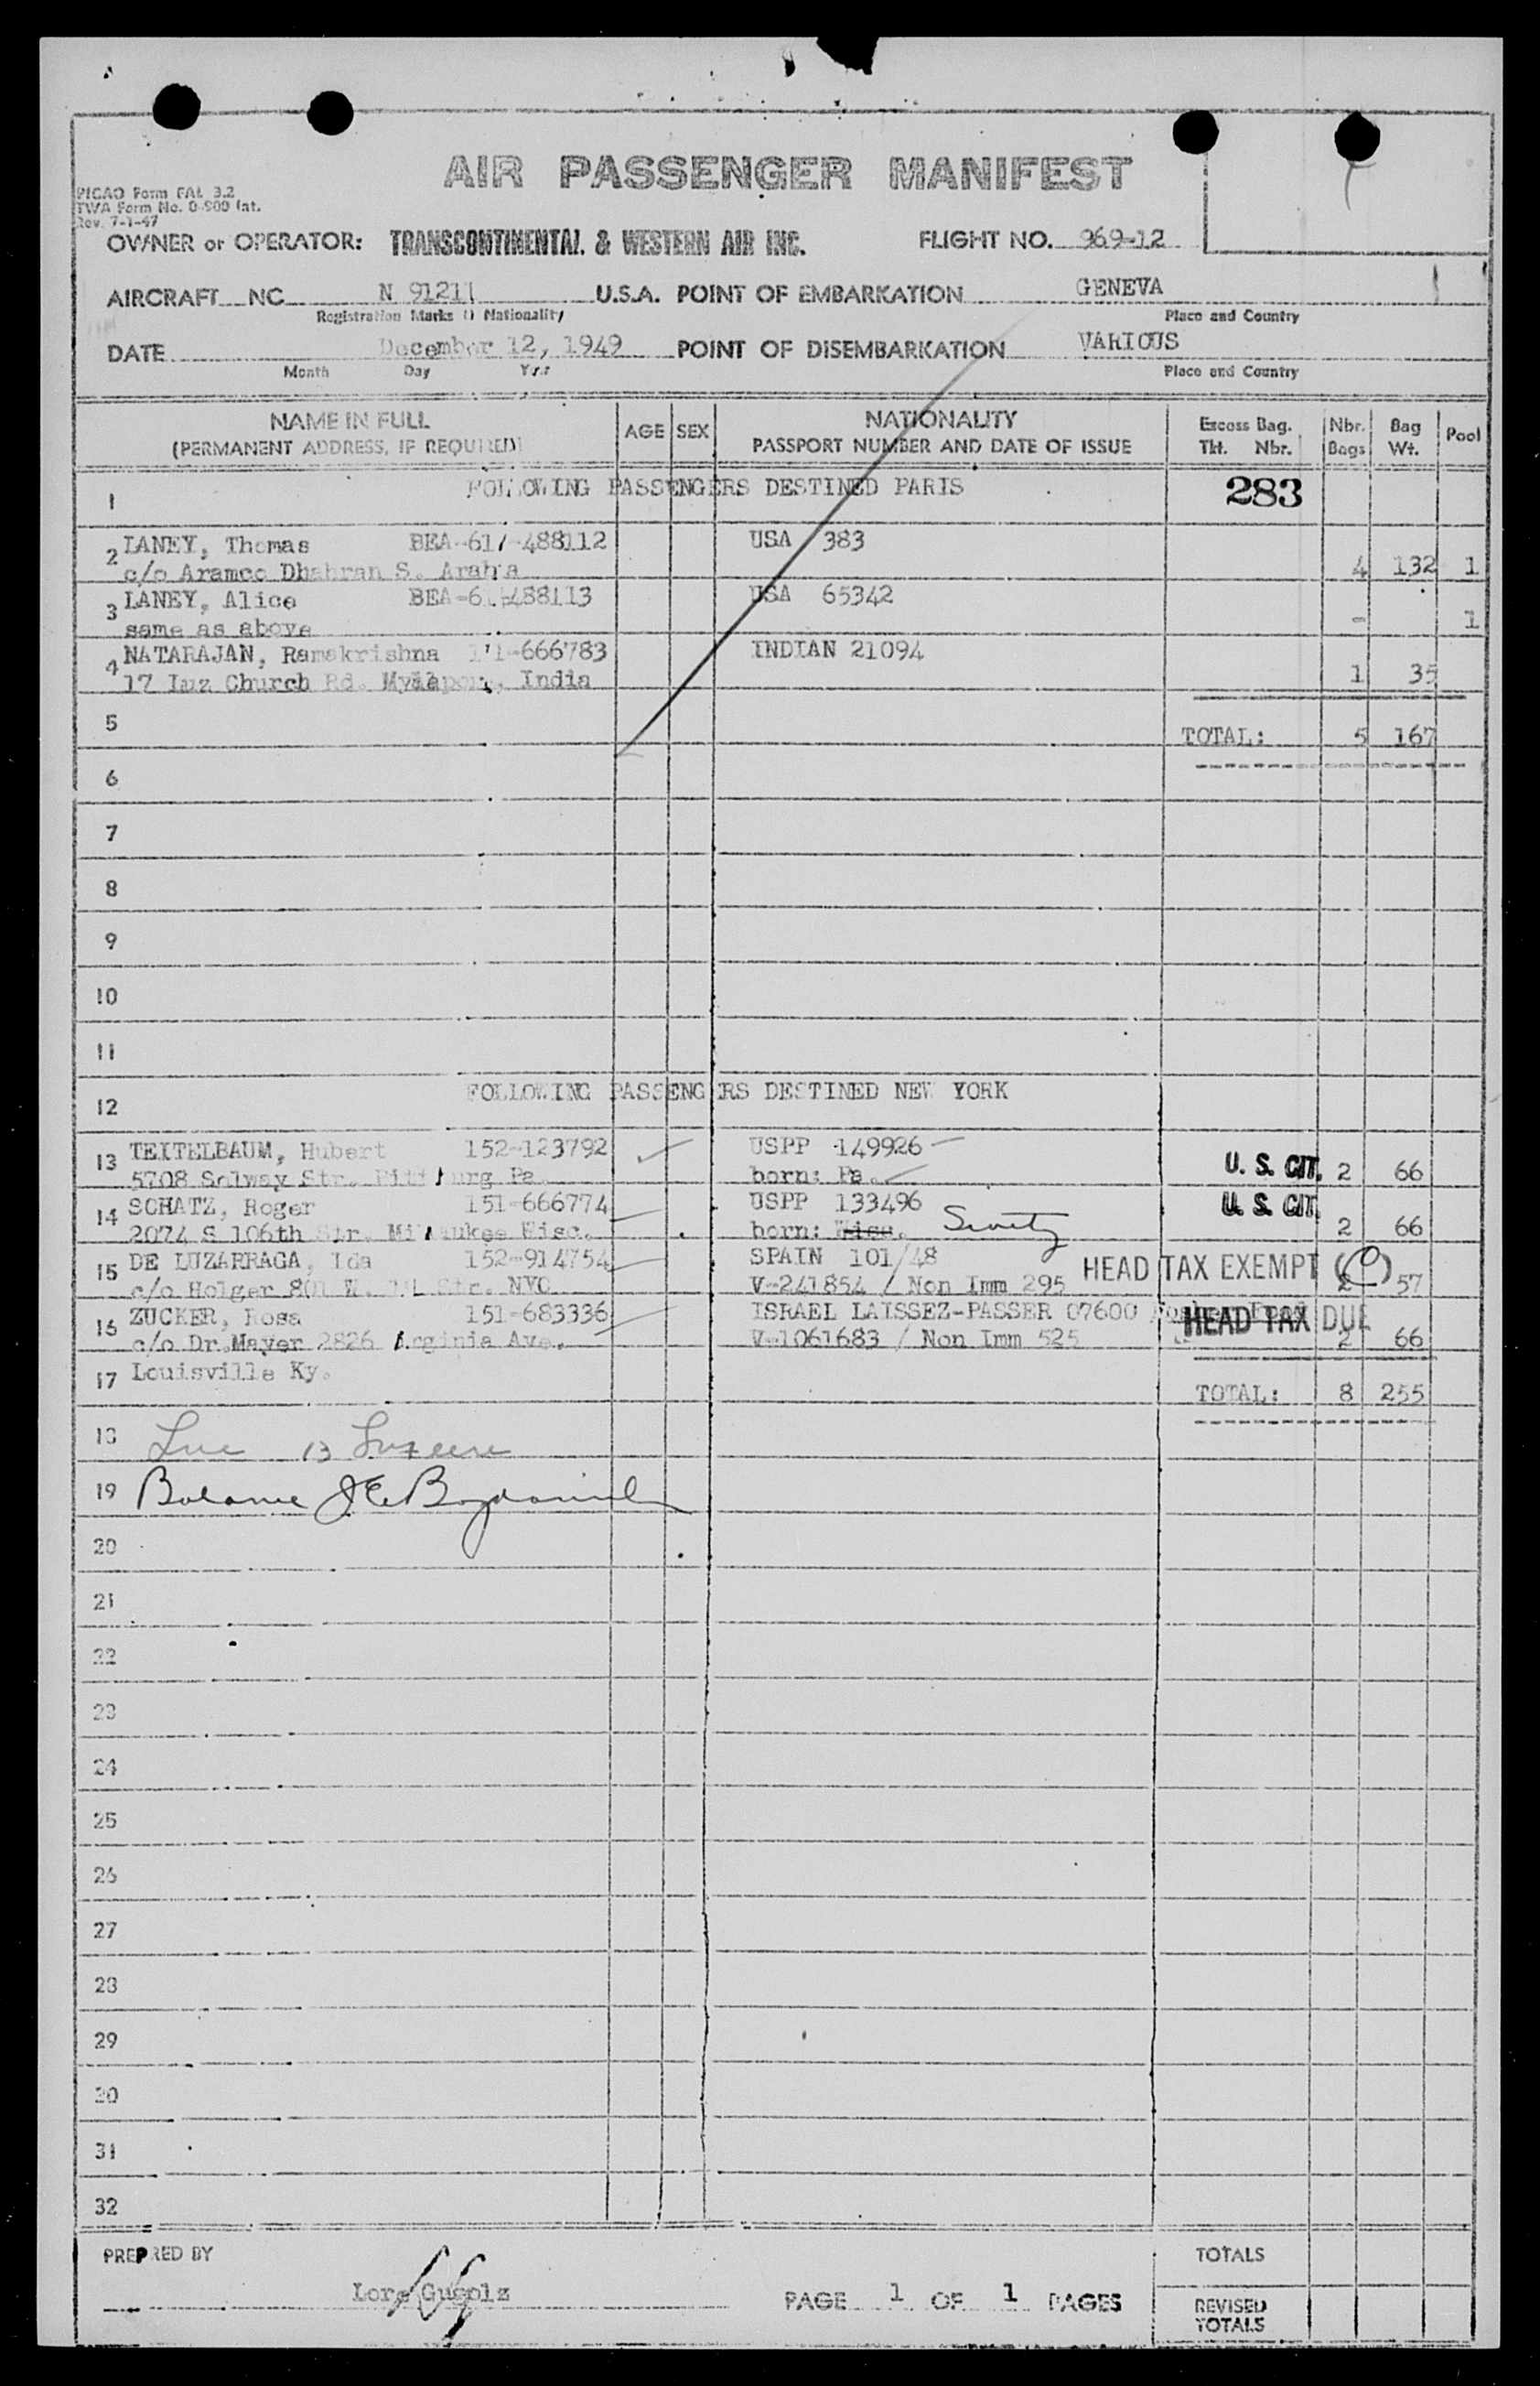 AIR PASSENGER MANIFEST
PICAO Form FAL 3.2
TWA Form No. 0-900 Int.
Rev. 7-1-47
OWNER or OPERATOR: TRANSCONTINENTAL & WESTERN AIR INC. FLIGHT NO. 969-12
AIRCRAFT NC N 91211 U.S.A. POINT OF EMBARKATION GENEVA
Registration Marks Nationality Place and Country
DATE December 12, 1949 POINT OF DISEMBARKATION VARIOUS
Month Day Year Place and Country
NAME IN FULL AGE SEX NATIONALITY Excess Bag. Nbr. Bag Pool
(PERMANENT ADDRESS, IF REQUIRED) PASSPORT NUMBER AND DATE OF ISSUE Tkt. Nbr. Bags Wt.
1 FOLLOWING PASSENGERS DESTINED PARIS 283
2 LANEY, Thomas BEA-617-488112 USA 383
c/o Aramco Dhahran S. Arabia 4 132 1
3 LANEY, Alice BEA-61-488113 USA 65342
same as above - 1
4 NATARAJAN, Ramakrishna 151-666783 INDIAN 21094
17 Luz Church Rd. Mylapore, India 1 35
5 TOTAL: 5 167
6
7
8
9
10
11
12 FOLLOWING PASSENGERS DESTINED NEW YORK
13 TEITELBAUM, Hubert 152-123792 USPP 149926
5708 Solway Str. Pittburg Pa. born: Pa. U. S. CIT. 2 66
14 SCHATZ, Roger 151-666774 USPP 133496 U. S. CIT.
2074 S 106th Str. Milwaukee Wisc. born: Wisc. 2 66
15 DE LUZARRAGA, Ida 152-914754 SPAIN 101/48 HEAD TAX EXEMPT
c/o Holger 801 W. Str. NYC V-241854 / Non Imm 295 2 57
16 ZUCKER, Rosa 151-683336 ISRAEL LAISSEZ-PASSER 07600 HEAD TAX DUE
c/o Dr.Mayer 2826 Virginia Ave. V-1061683 / Non Imm 525 2 66
17 Louisville Ky. TOTAL: 8 255
18 Line 13
19
20
21
22
23
24
25
26
27
28
29
30
31
32
PREPARED BY TOTALS
PAGE 1 OF 1 PAGES REVISED
TOTALS